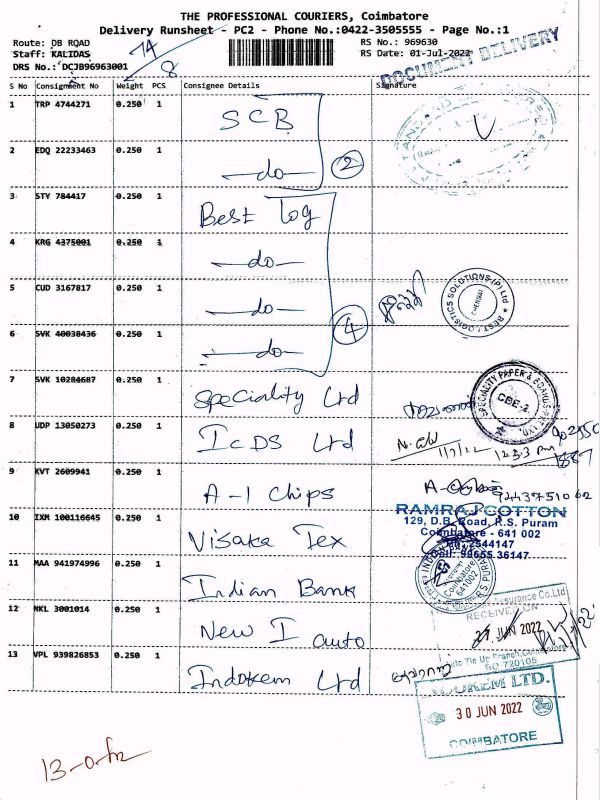 THE PROFESSIONAL COURIERS, Coimbatore
Delivery Runsheet - PC2 - Phone No.:0422-3505555 - Page No.:1
Route: DB ROAD
RS No.: 969630
Staff: KALIDAS
RS Date: 01-Jul-2022
DRS No.: DCJB96963001
74
8
DOCUMENT DELIVERY
S No Consignment No Weight PCS Consignee Details Signature
1 TRP 4744271 0.250 1 SCB
2 EDQ 22233463 0.250 1 —do— 2
3 STY 784417 0.250 1 Best Log
4 KRG 4375001 0.250 1 —do—
5 CUD 3167817 0.250 1 —do—
BEST LOGISTICS SOLUTIONS (P) Ltd
CHENNAI
6 SVK 40038436 0.250 1 —do— 4
7 SVK 10284687 0.250 1 Speciality Ltd
SPECIALITY PAPER & BOARDS PVT LTD.
CBE-2
8 UDP 13050273 0.250 1 ICDS Ltd
1/7/22
9 KVT 2609941 0.250 1 A-1 Chips
10 IXM 100116645 0.250 1 Visaka Tex
RAMRAJ COTTON
129, D.B. Road, R.S. Puram
Coimbatore - 641 002
2544147
Cell: 99655 36147
11 MAA 941974996 0.250 1 Indian Bank
INDIAN BANK
Coimbatore
641002
R.S PURAM
12 NKL 3001014 0.250 1 New I auto
Insurance Co.Ltd
RECEIVED ON
JUN 2022
Auto Tie Up Branch, Coimbatore
BO 720105
13 VPL 939826853 0.250 1 Indokem Ltd
INDOKEM LTD.
30 JUN 2022
COIMBATORE